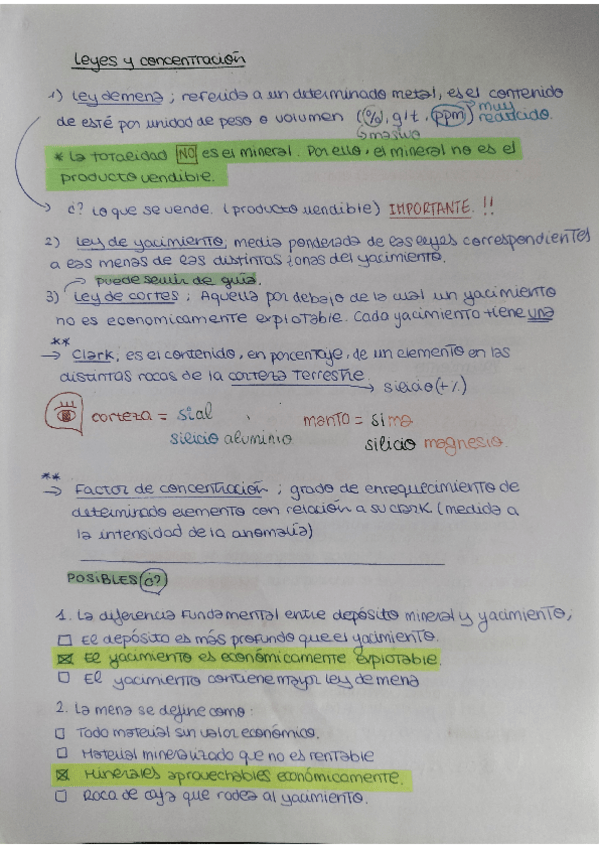 Leyes y concentración
1) Ley de mena; referida a un determinado metal, es el contenido
de esté por unidad de peso o volumen (%, g/t, ppm) muy reducido.
↳ masivo
* La totalidad NO es el mineral. Por ello, el mineral no es el
producto vendible.
¿? Lo que se vende. (producto vendible) IMPORTANTE. !!
2) Ley de yacimiento, media ponderada de las leyes correspondientes
a las menas de las distintas zonas del yacimiento.
→ puede servir de guía.
3) Ley de cortes; Aquella por debajo de la cual un yacimiento
no es economicamente explotable. Cada yacimiento tiene una
**
→ Clark, es el contenido, en porcentaje, de un elemento en las
distintas rocas de la corteza terrestre.
→ silicio (+%)
corteza = sial manto = sima
silicio aluminio silicio magnesio.
**
→ Factor de concentración; grado de enrequecimiento de
determinado elemento con relación a su clark. (medida a
la intensidad de la anomalía)
POSIBLES ¿?
1. La diferencia fundamental entre depósito mineral y yacimiento;
□ El depósito es más profundo que el yacimiento.
☒ El yacimiento es económicamente explotable.
□ El yacimiento contiene mayor ley de mena
2. La mena se define como:
□ Todo material sin valor económico.
□ Material mineralizado que no es rentable
☒ Minerales aprovechables económicamente.
□ Roca de caja que rodea al yacimiento.